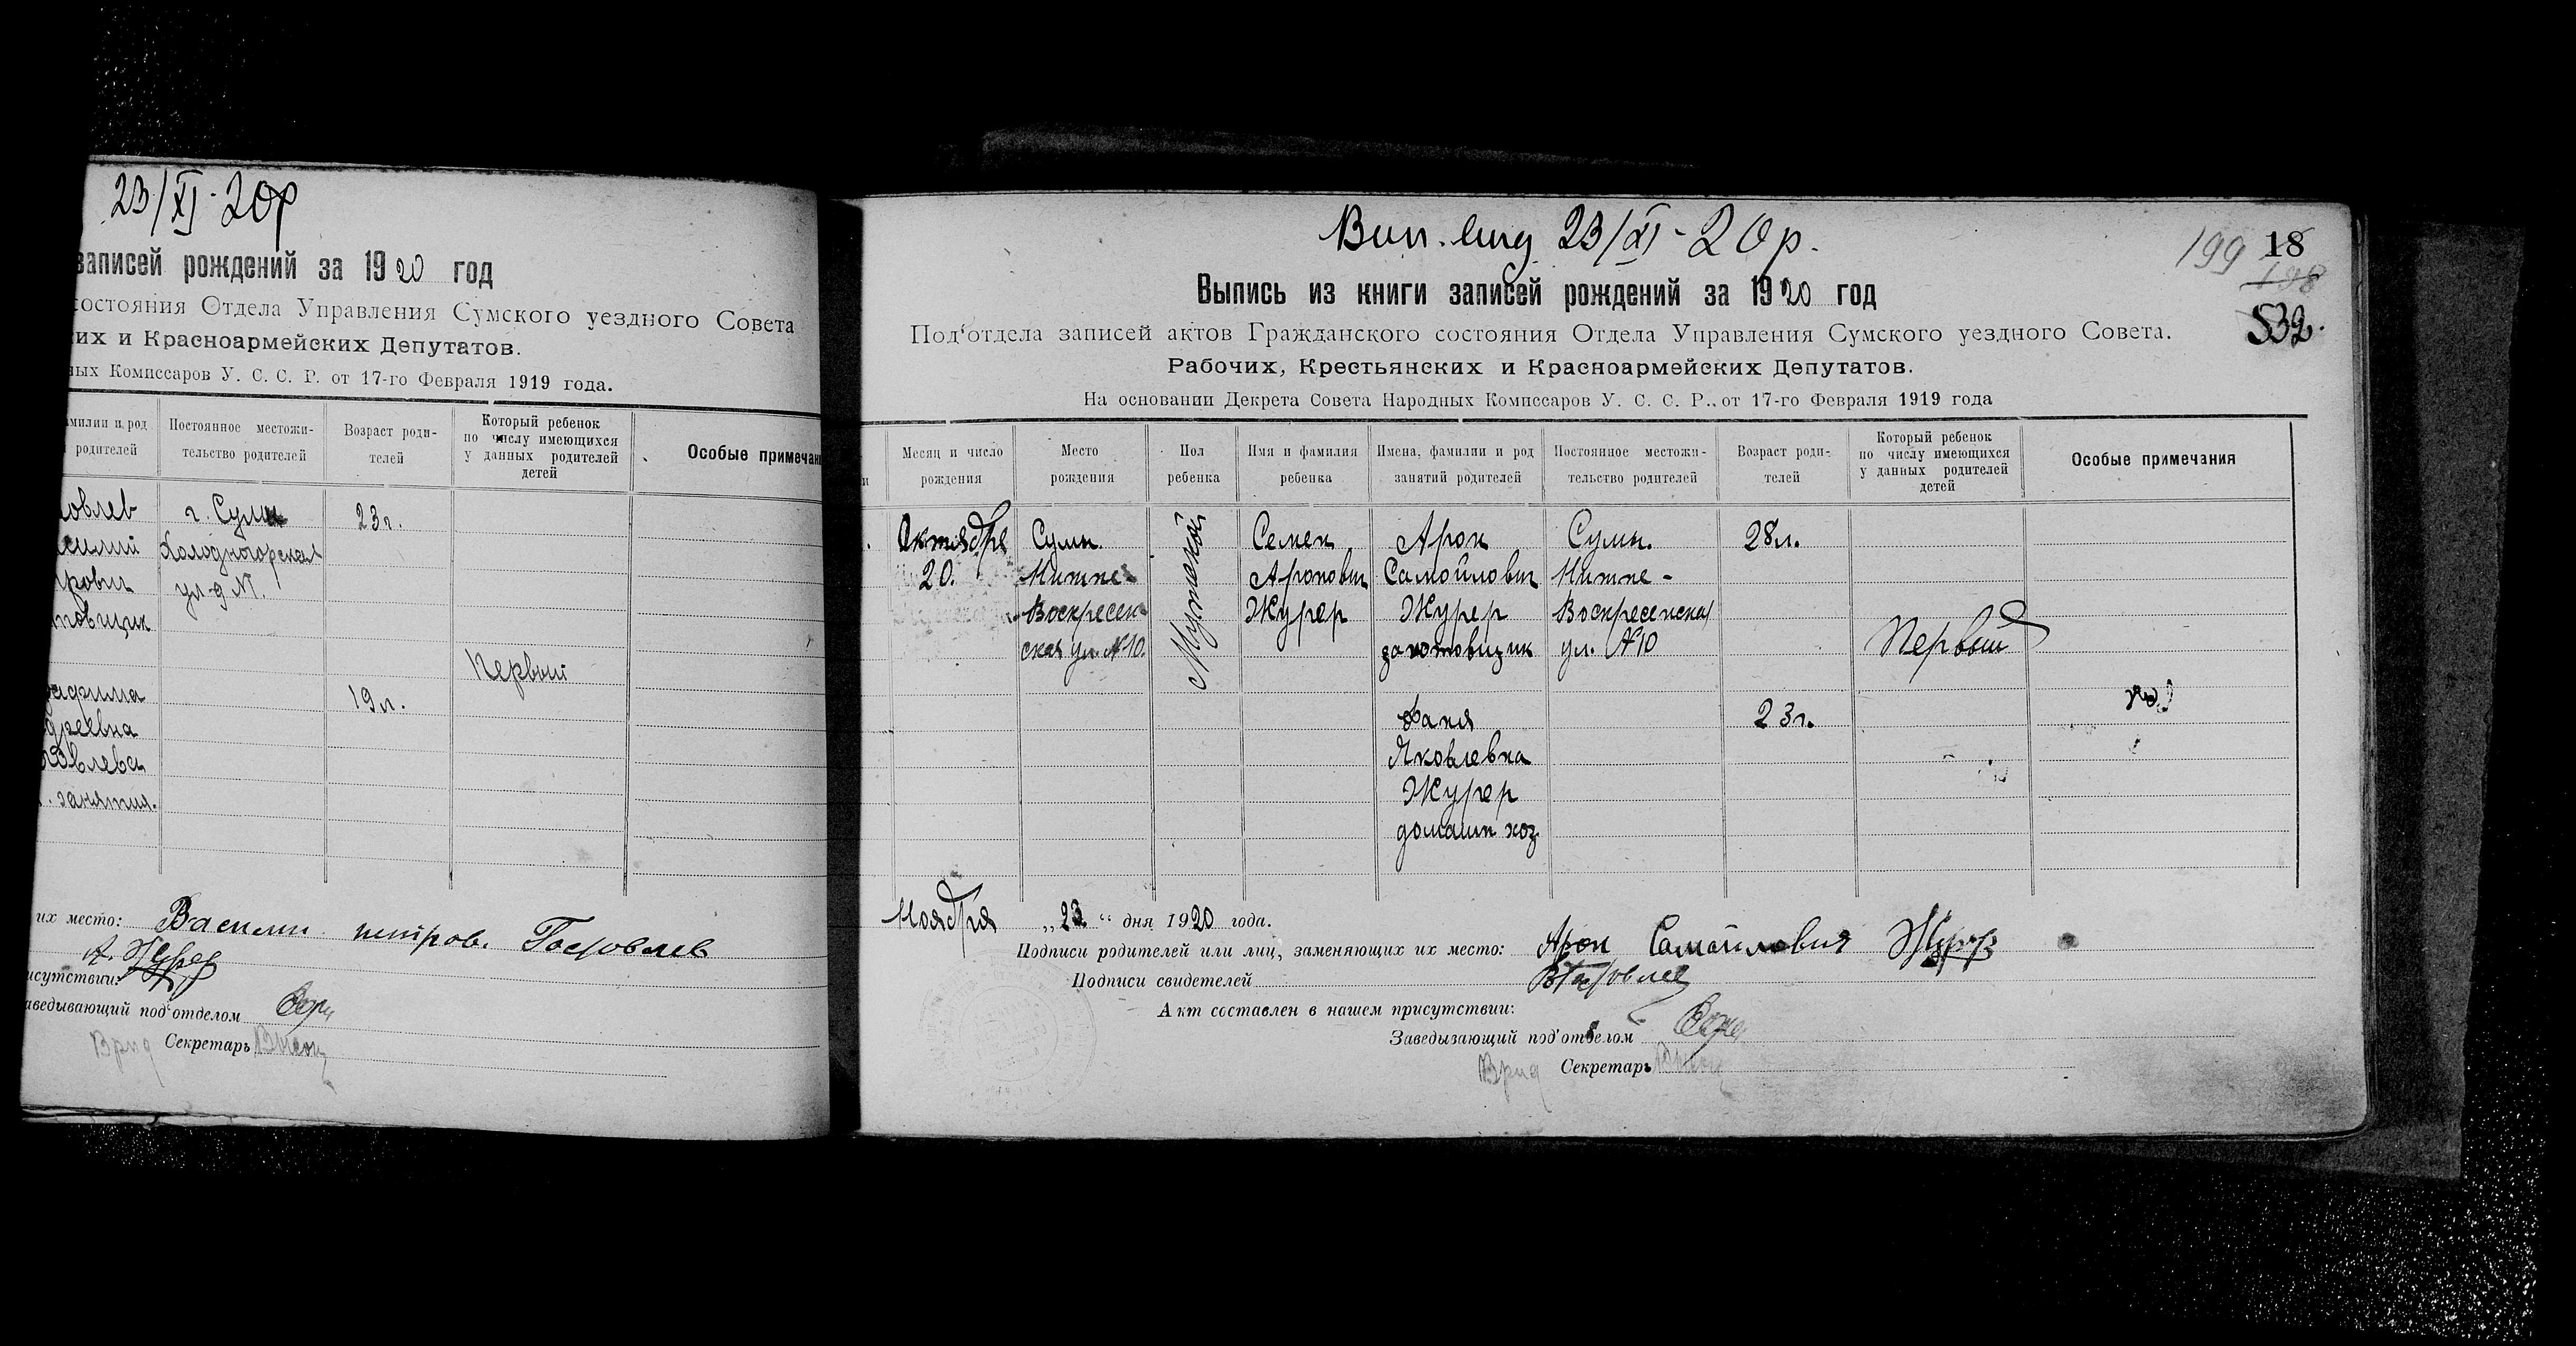 23/XI-20р
записей рождений за 1920 год
состояния Отдела Управления Сумского уездного Совета
их и Красноармейских Депутатов.
ных Комиссаров У. С. С. Р. от 17-го Февраля 1919 года.
милии и род
родителей
Постоянное местожи-
тельство родителей
Возраст роди-
телей
Который ребенок
по числу имеющихся
у данных родителей
детей
Особые примечани
овлев
силий
трович
товщик
г. Сумы
Холодногорская
ул д №1
23г.
Первый
19л.
дреевна
овлева
занятия.
их место: Василий петров.
А. Журер
исутствии:
аведывающий под'отделом
Врид Секретарь
Вип. вид 23/XI-20р.
199 18
198
532.
Выпись из книги записей рождений за 1920 год
Под'отдела записей актов Гражданского состояния Отдела Управления Сумского уездного Совета.
Рабочих, Крестьянских и Красноармейских Депутатов.
На основании Декрета Совета Народных Комиссаров У. С. С. Р., от 17-го Февраля 1919 года
Месяц и число
рождения
Место
рождения
Пол
ребенка
Имя и фамилия
ребенка
Имена, фамилии и род
занятий родителей
Постоянное местожи-
тельство родителей
Возраст роди-
телей
Который ребенок
по числу имеющихся
у данных родителей
детей
Особые примечания
Октября
20.
Сумы.
Нижне-
Воскресен
ская ул. №10.
Мужской
Семен
Аронович
Журер
Арон
Самойлович
Журер
заготовщик
Фаня
Яковлевна
Журер
домашн хоз.
Сумы.
Нижне-
Воскресенская
ул. №10
28л.
23г.
Первый
Ноября „23“ дня 1920 года.
Подписи родителей или лиц, заменяющих их место: Арон Самойлович Журер
Подписи свидетелей
Акт составлен в нашем присутствии:
Заведызающий под'отделом
Врид Секретарь